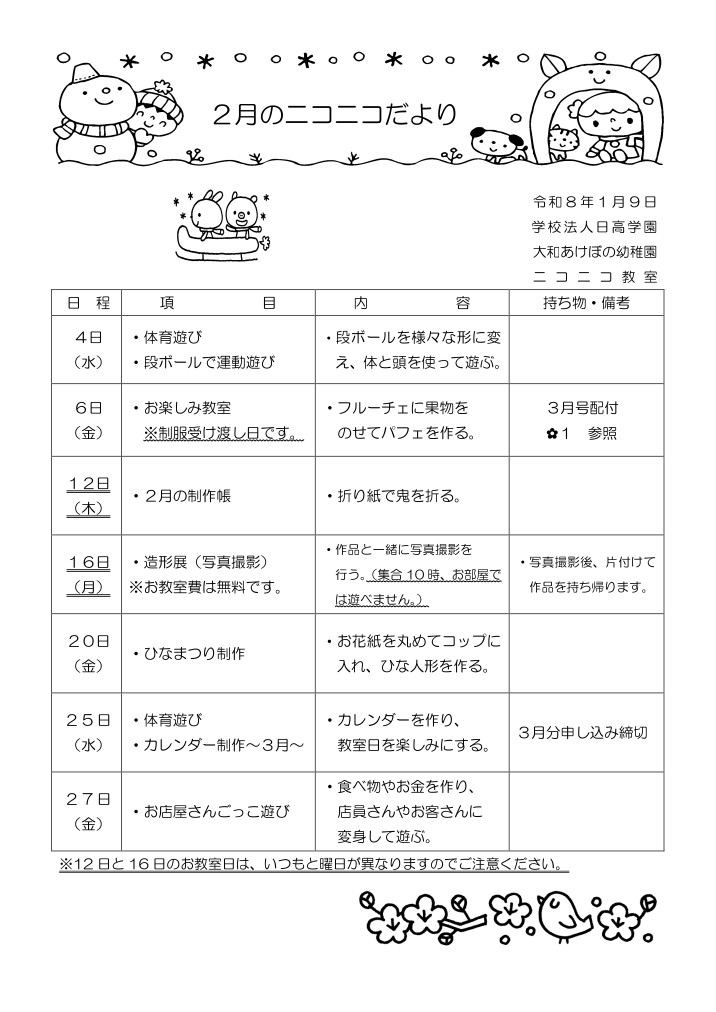 ２月のニコニコだより
令和８年１月９日
学校法人日高学園
大和あけぼの幼稚園
ニコニコ教室
日　程　項　目　内　容　持ち物・備考
４日
（水）
・体育遊び
・段ボールで運動遊び
・段ボールを様々な形に変
え、体と頭を使って遊ぶ。
６日
（金）
・お楽しみ教室
※制服受け渡し日です。
・フルーチェに果物を
のせてパフェを作る。
３月号配付
✿１　参照
１２日
（木）
・２月の制作帳
・折り紙で鬼を折る。
１６日
（月）
・造形展（写真撮影）
※お教室費は無料です。
・作品と一緒に写真撮影を
行う。（集合 10 時、お部屋で
は遊べません。）
・写真撮影後、片付けて
作品を持ち帰ります。
２０日
（金）
・ひなまつり制作
・お花紙を丸めてコップに
入れ、ひな人形を作る。
２５日
（水）
・体育遊び
・カレンダー制作～３月～
・カレンダーを作り、
教室日を楽しみにする。
３月分申し込み締切
２７日
（金）
・お店屋さんごっこ遊び
・食べ物やお金を作り、
店員さんやお客さんに
変身して遊ぶ。
※12 日と 16 日のお教室日は、いつもと曜日が異なりますのでご注意ください。